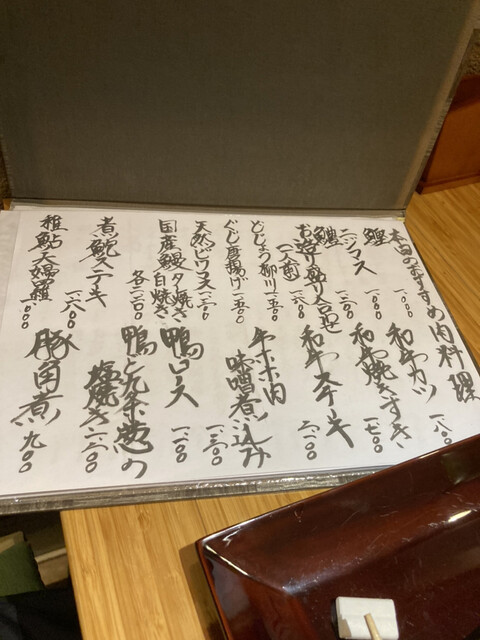 本日のおすすめ
鰹 一.〇〇〇
ニジマス
鱧
お造り盛り合わせ
(一人前) 一.六〇〇
どじょう柳川 一.五〇〇
ぐじ唐揚げ 一.五〇〇
天然ビワマス
国産鰻タレ焼き
白焼き 各二.二〇〇
煮鮑ステーキ
稚鮎天婦羅 一.〇〇〇
肉料理
和牛カツ 一.八〇〇
和牛焼きすき 一.七〇〇
和牛ステーキ 二.一〇〇
牛ホホ肉
味噌煮込み 一.三〇〇
鴨ロース 一.一〇〇
鴨と九条葱の
塩焼き 一.二〇〇
豚角煮 九〇〇